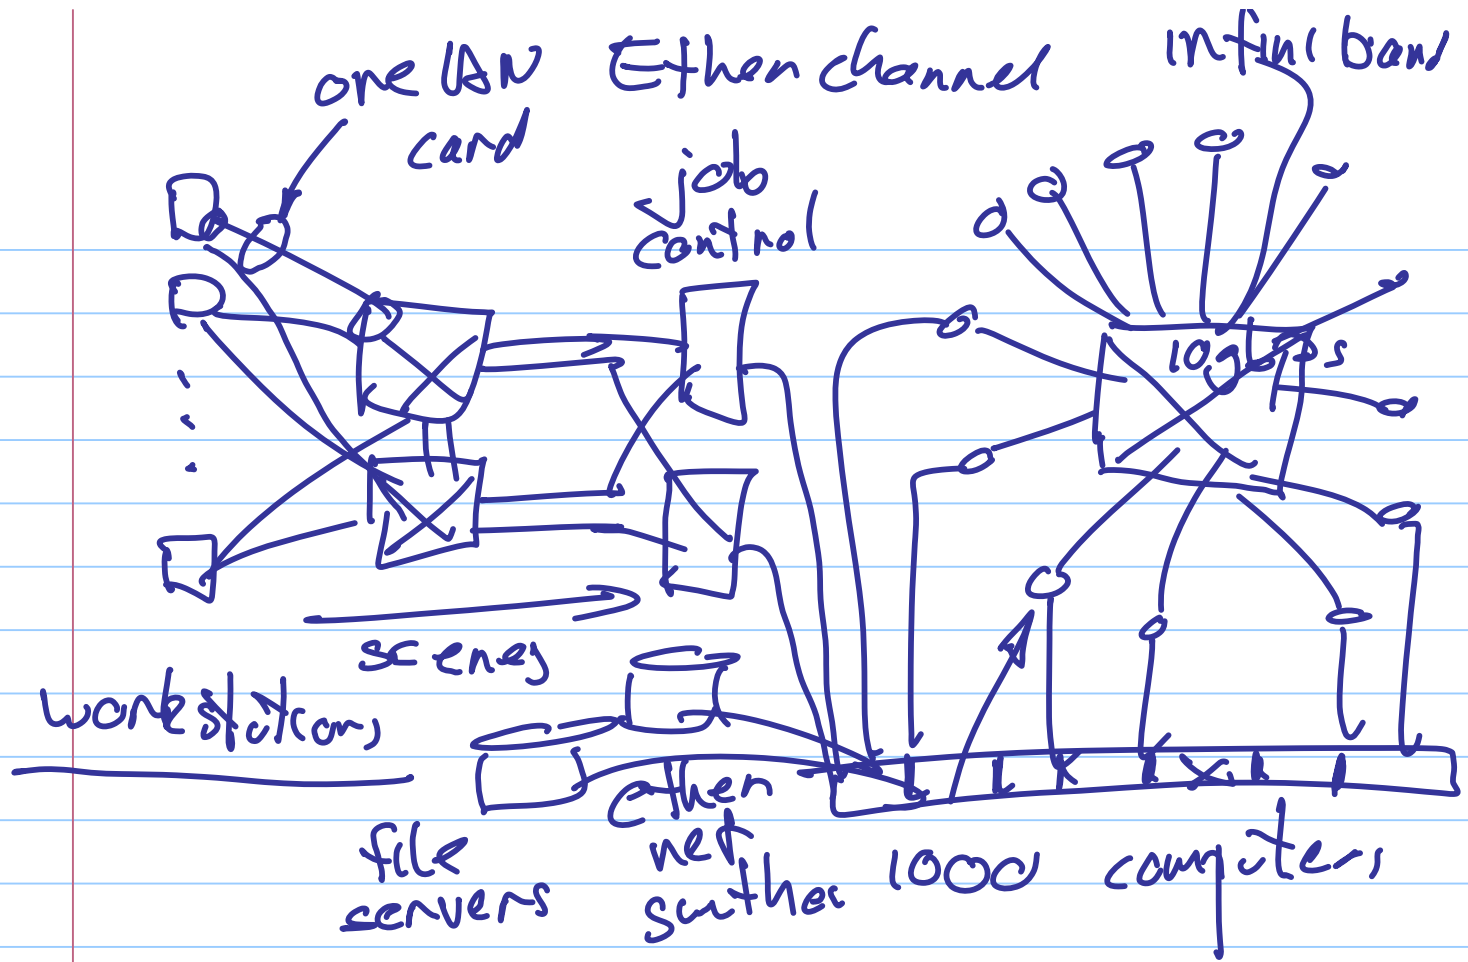 one LAN
card
Etherchannel
infini band
job
control
10gbs
scenes
workstations
file
servers
ether
net
switches
1000 computers